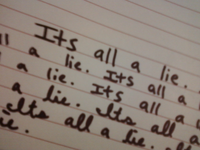 Its all a lie.
ll a lie. Its all a l
a lie. Its all a
a lie. Its all a
Its all a lie.
ie.